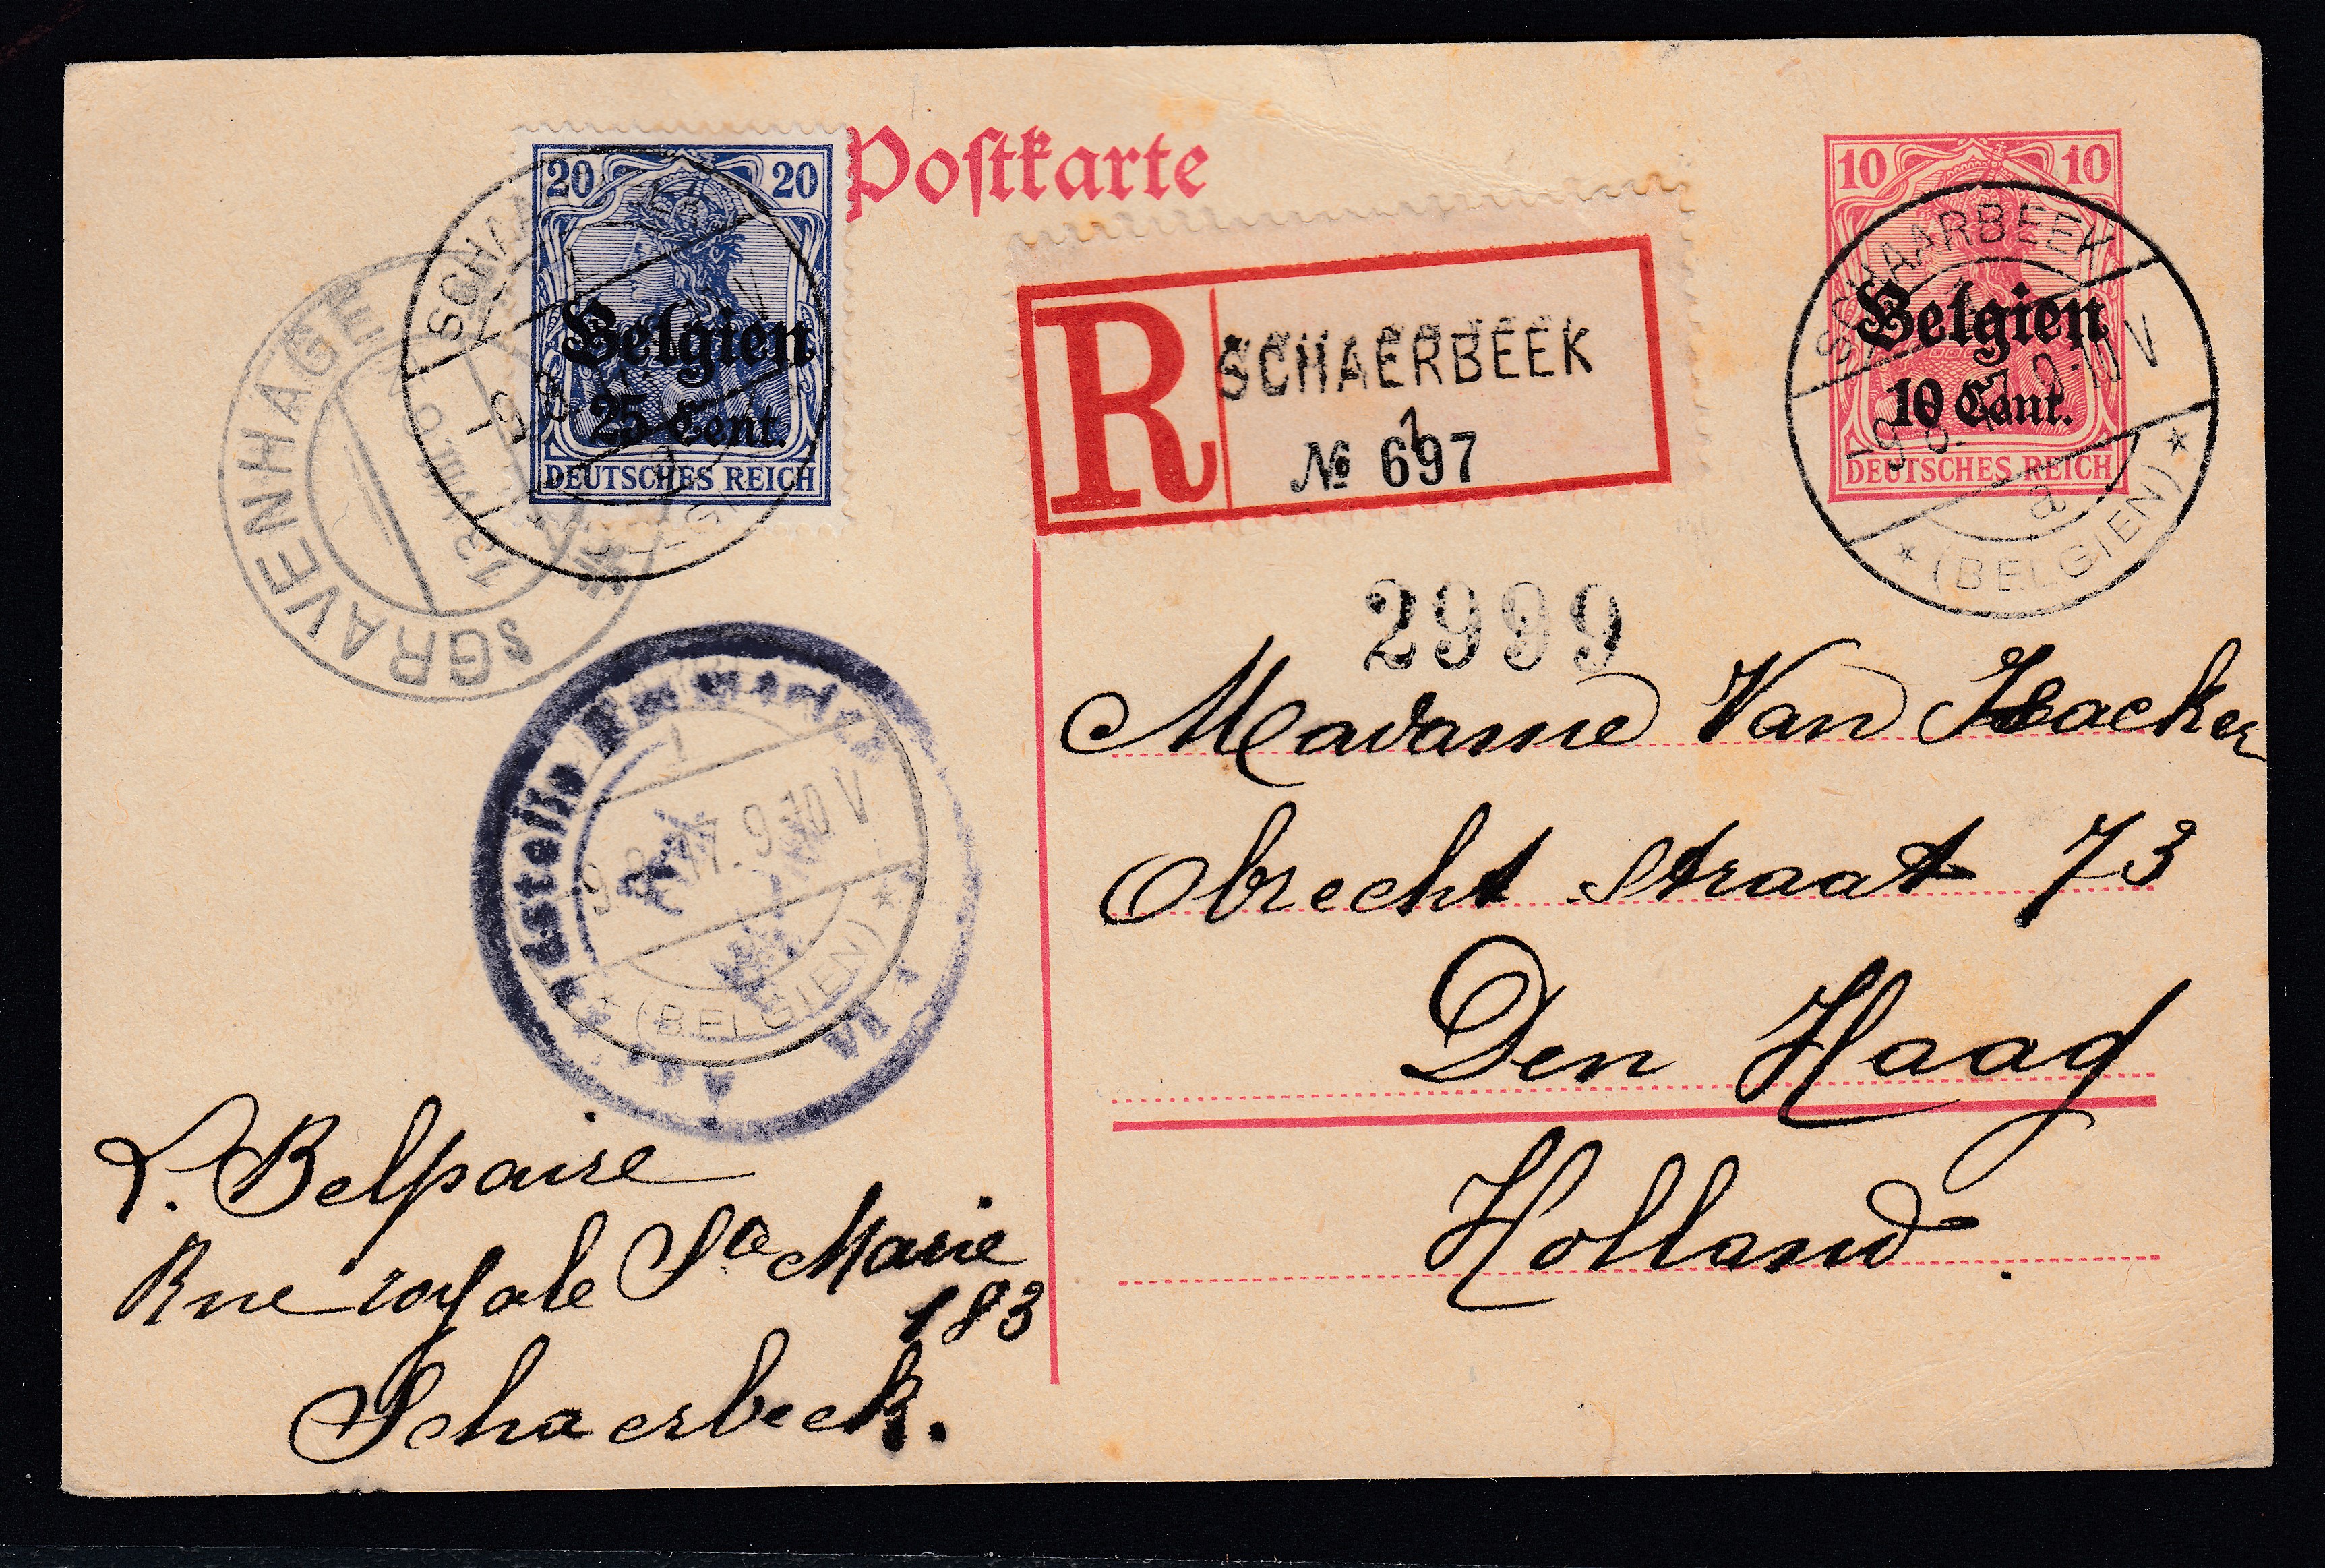 Postkarte
20 20
Belgien
25 Cent.
DEUTSCHES REICH
10 10
Belgien
10 Cent.
DEUTSCHES REICH
SCHAARBEEK
9.8.17.9-10 V
a
* (BELGIEN) *
R SCHAERBEEK
1
№ 697
2999
'SGRAVENHAGE
13.VIII.
1
9.8.17.9-10 V
* (BELGIEN) *
Madame Van
Obrecht straat 73
Den Haag
Holland.
L. Belpaire
Rue royale Ste Marie
183
Schaerbeek.